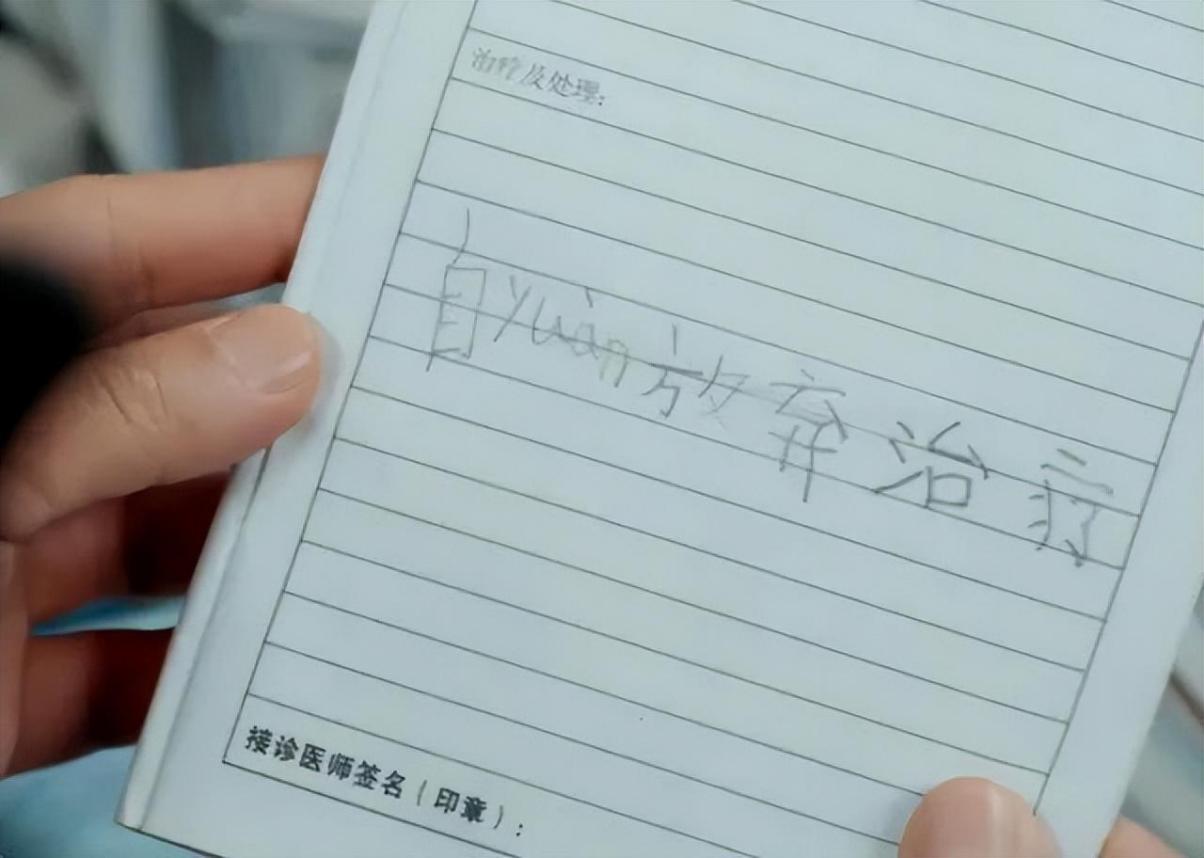 治疗及处理:
自yuàn放弃治疗
接诊医师签名(印章):